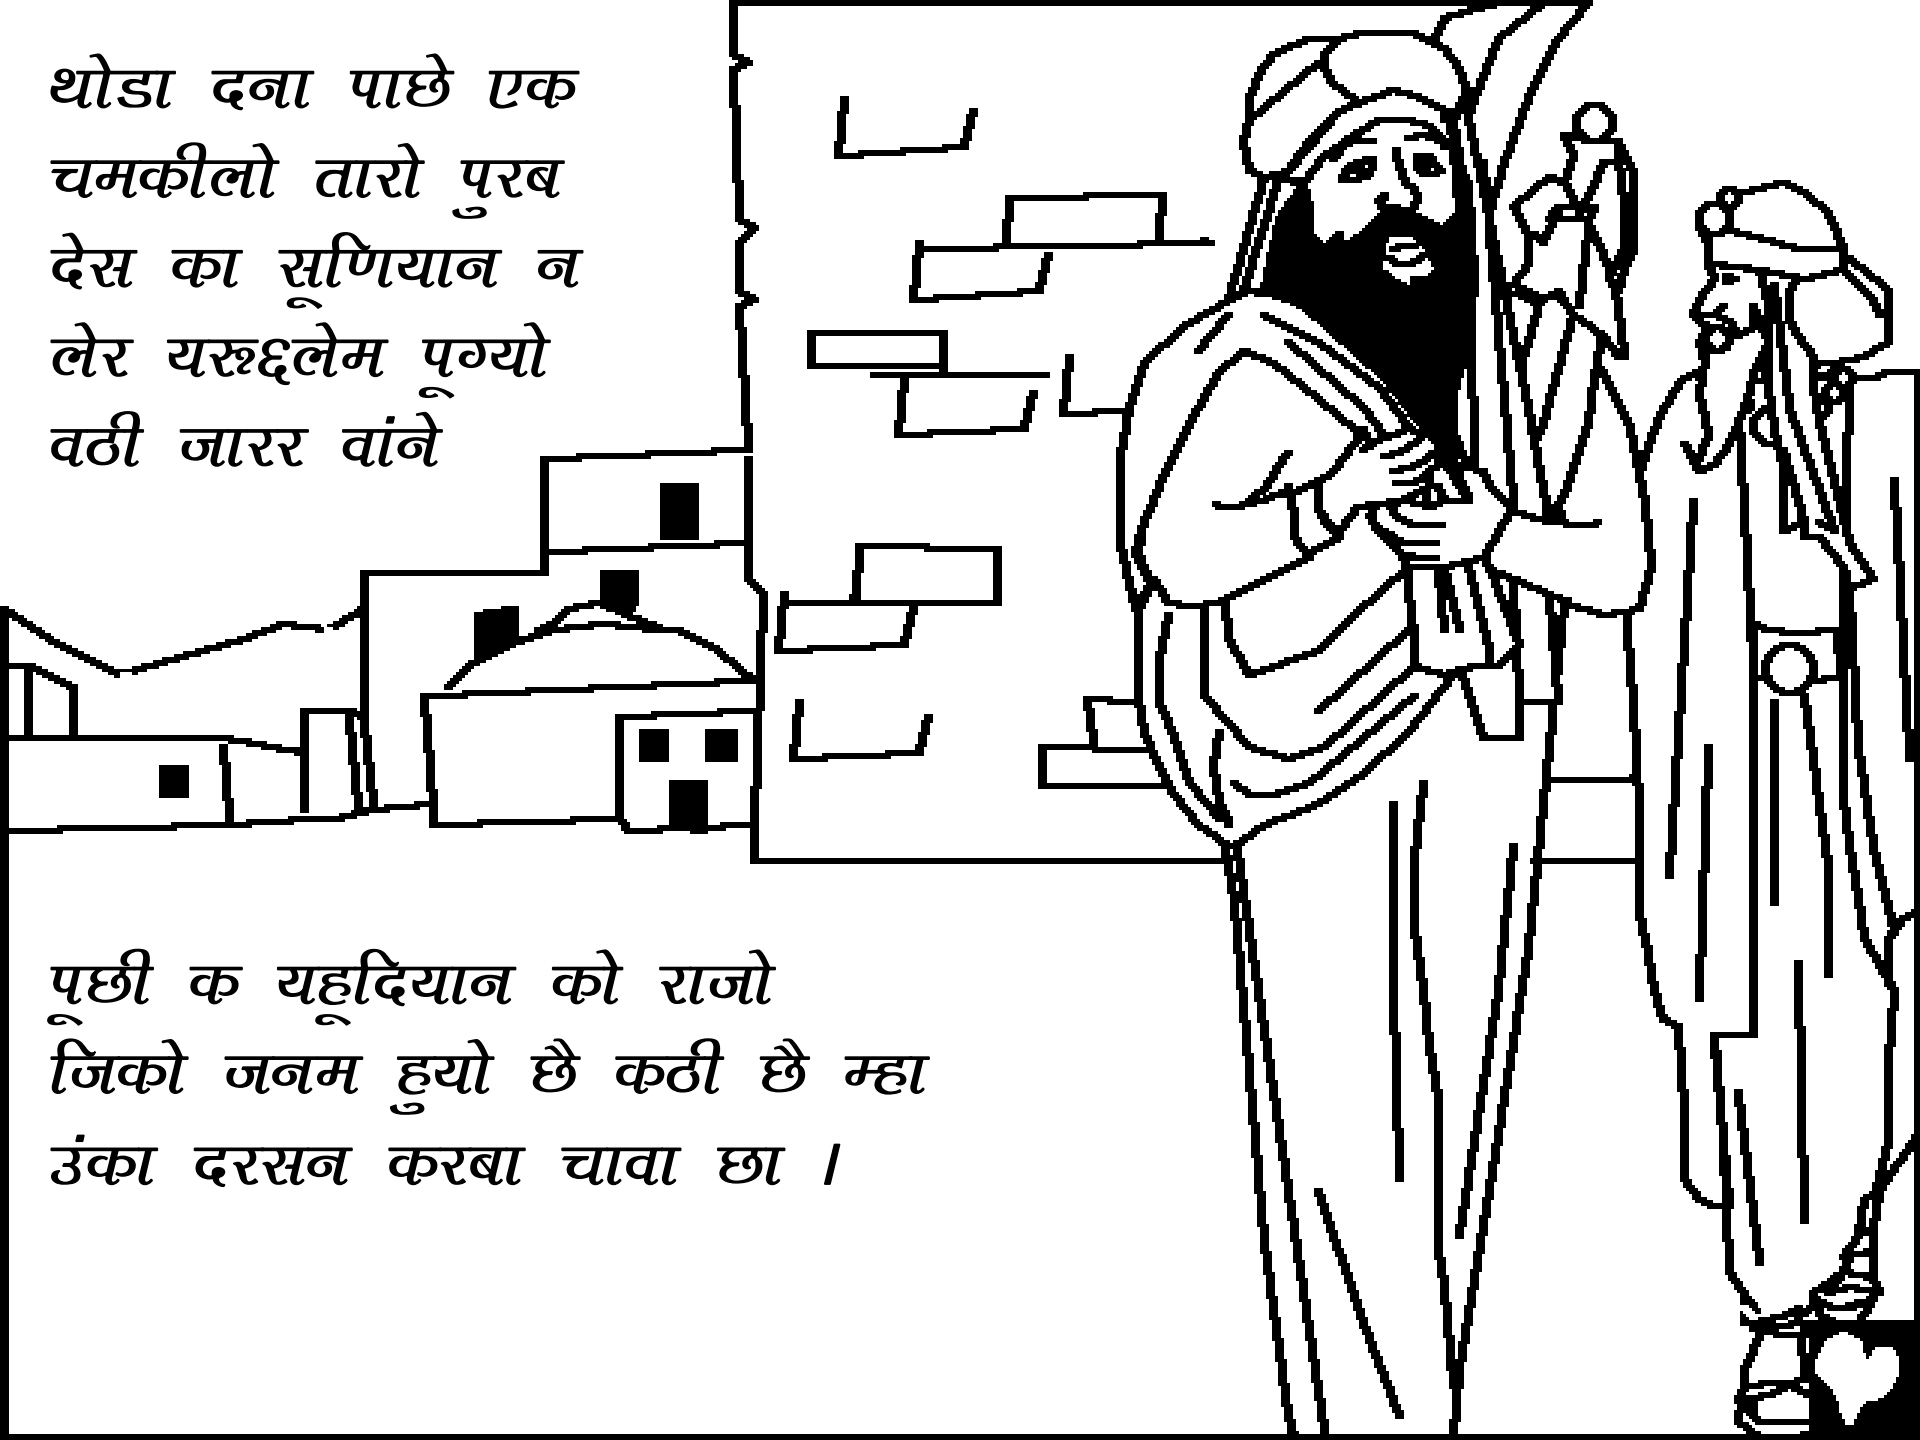 थोडा दना पाछे एक
चमकीलो तारो पुरब
देस का सूणियान न
लेर यरूद्दलेम पूग्यो
वठी जारर वांने
पूछी क यहूदियान को राजो
जिको जनम हुयो छै कठी छै म्हा
उंका दरसन करबा चावा छा ।